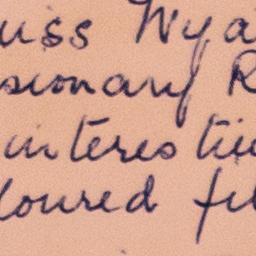 uss Wya
sionary R
interestin
loured fil